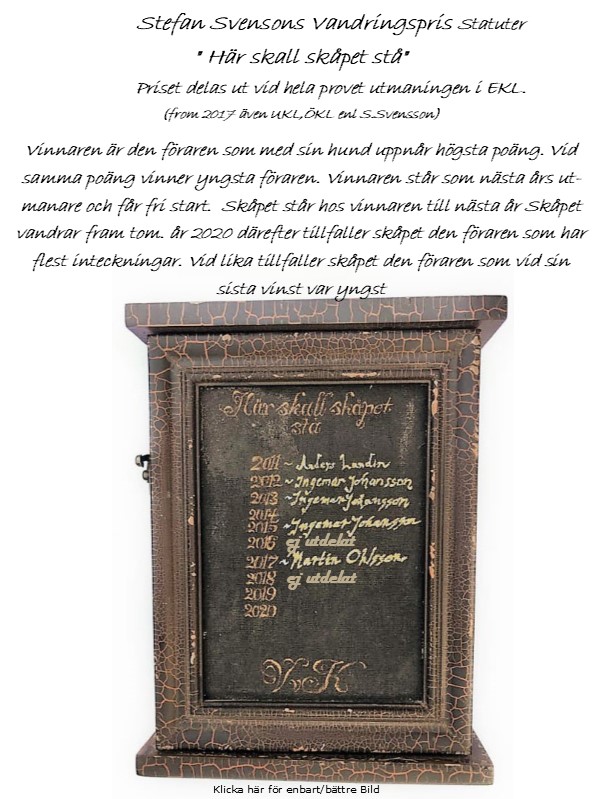 Stefan Svensons Vandringspris Statuter
"Här skall skåpet stå"
Priset delas ut vid hela provet utmaningen i EKL.
(from 2017 även UKL,ÖKL enl S.Svensson)
Vinnaren är den föraren som med sin hund uppnår högsta poäng. Vid
samma poäng vinner yngsta föraren. Vinnaren står som nästa års ut-
manare och får fri start. Skåpet står hos vinnaren till nästa år Skåpet
vandrar fram tom. år 2020 därefter tillfaller skåpet den föraren som har
flest inteckningar. Vid lika tillfaller skåpet den föraren som vid sin
sista vinst var yngst
Här skall skåpet
stå
2011 ~ Anders Lundin
2012 ~ Ingemar Johansson
2013 ~ Ingemar Johansson
2014
2015 ~ Ingemar Johansson
2016 ej utdelat
2017 ~ Martin Ohlsson
2018 ej utdelat
2019
2020
VvK
Klicka här för enbart/bättre Bild